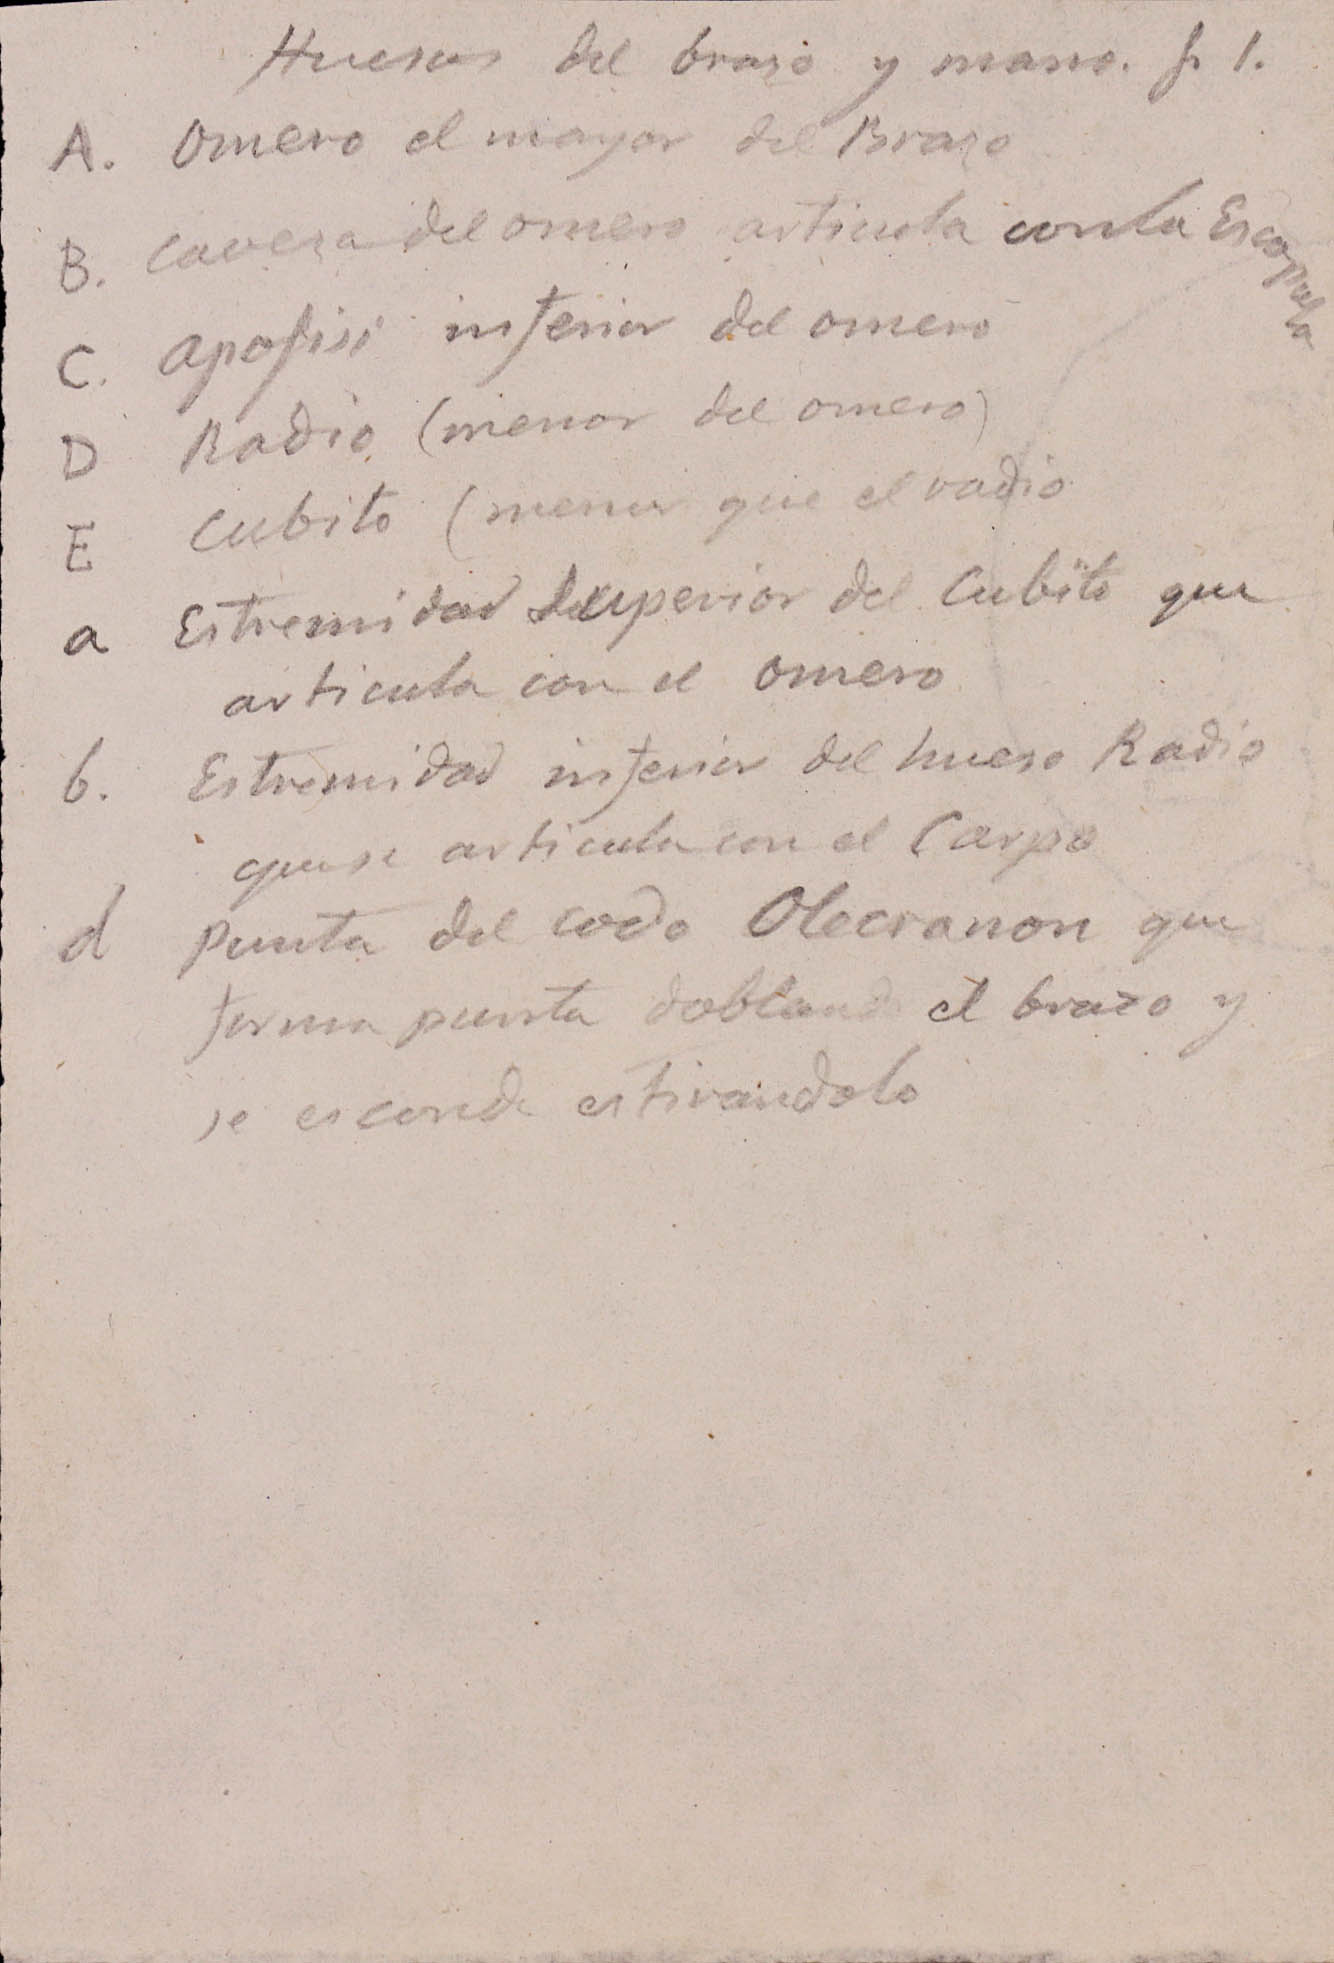 Huesos del brazo y mano. f. 1.
A. Omero el mayor del Brazo
B. Caveza del omero articula con la Escapula
C. Apofisi inferior del omero
D Radio (menor del omero)
E Cubito (menor que el radio
a Estremidad Superior del Cubito que
articula con el omero
b. Estremidad inferior del hueso Radio
que se articula con el Carpo
d Punta del codo Olecranon que
forma punta doblando el brazo y
se esconde estirandolo